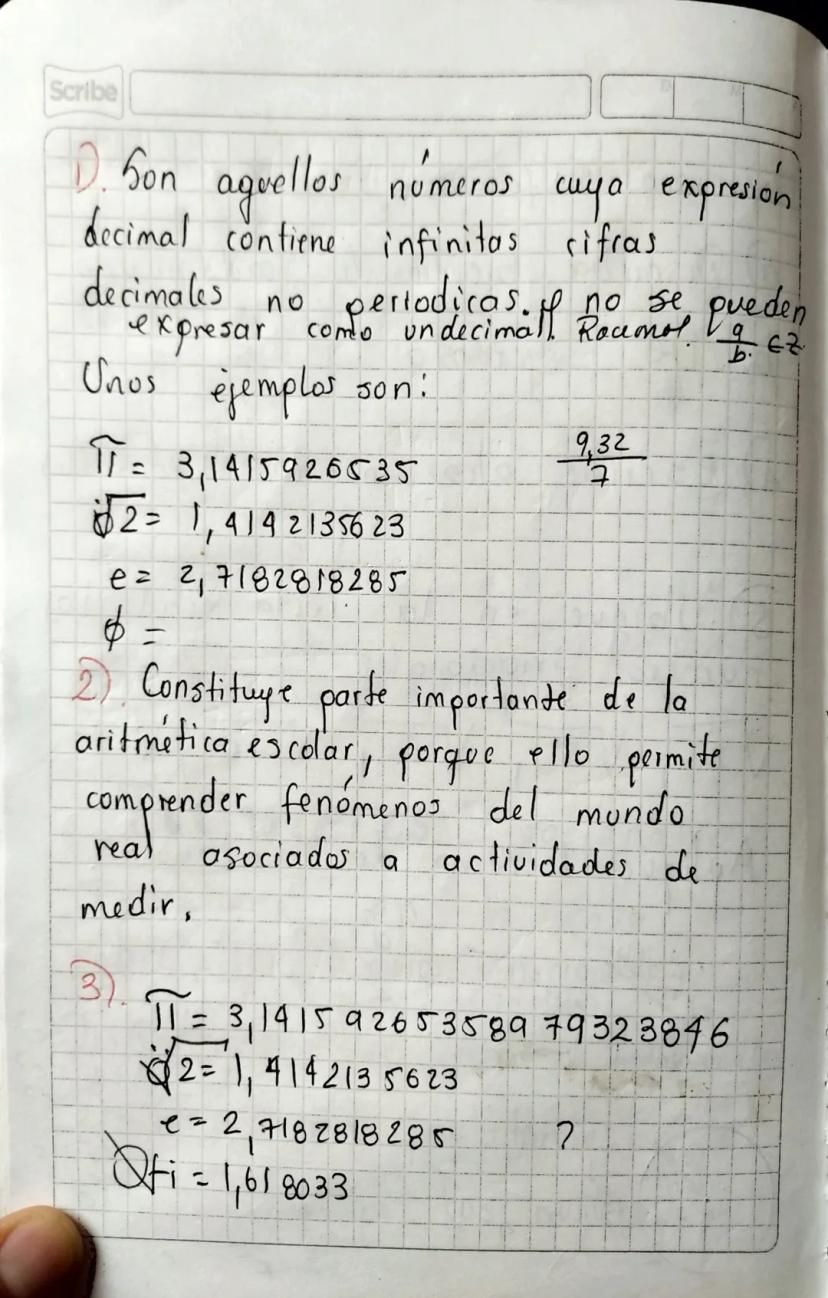 Scribe
1). Son aquellos números cuya expresión
decimal contiene infinitas cifras
decimales no periodicas. y no se pueden
expresar como un decimal. Racional. a/b. ∈ Z
Unos ejemplos son:
π = 3,1415926535
9,32/7
√2 = 1,4142135623
e = 2,7182818285
ϕ =
2). Constituye parte importante de la
aritmética escolar, porque ello permite
comprender fenómenos del mundo
real asociados a actividades de
medir.
3).
π = 3,14159265358979323846
√2 = 1,4142135623
e = 2,7182818285 ?
fi = 1,618033